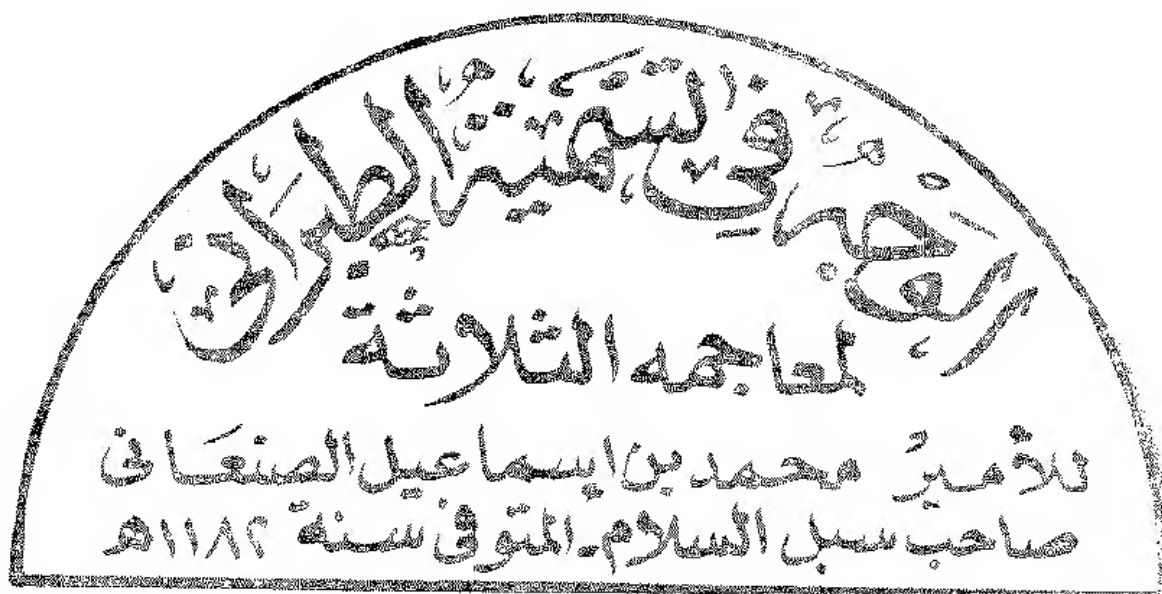 في تسمية الطبراني
لمعاجمه الثلاثة
للأمير محمد بن إسماعيل الصنعاني
صاحب سبل السلام - المتوفى سنة ١١٨٢هـ